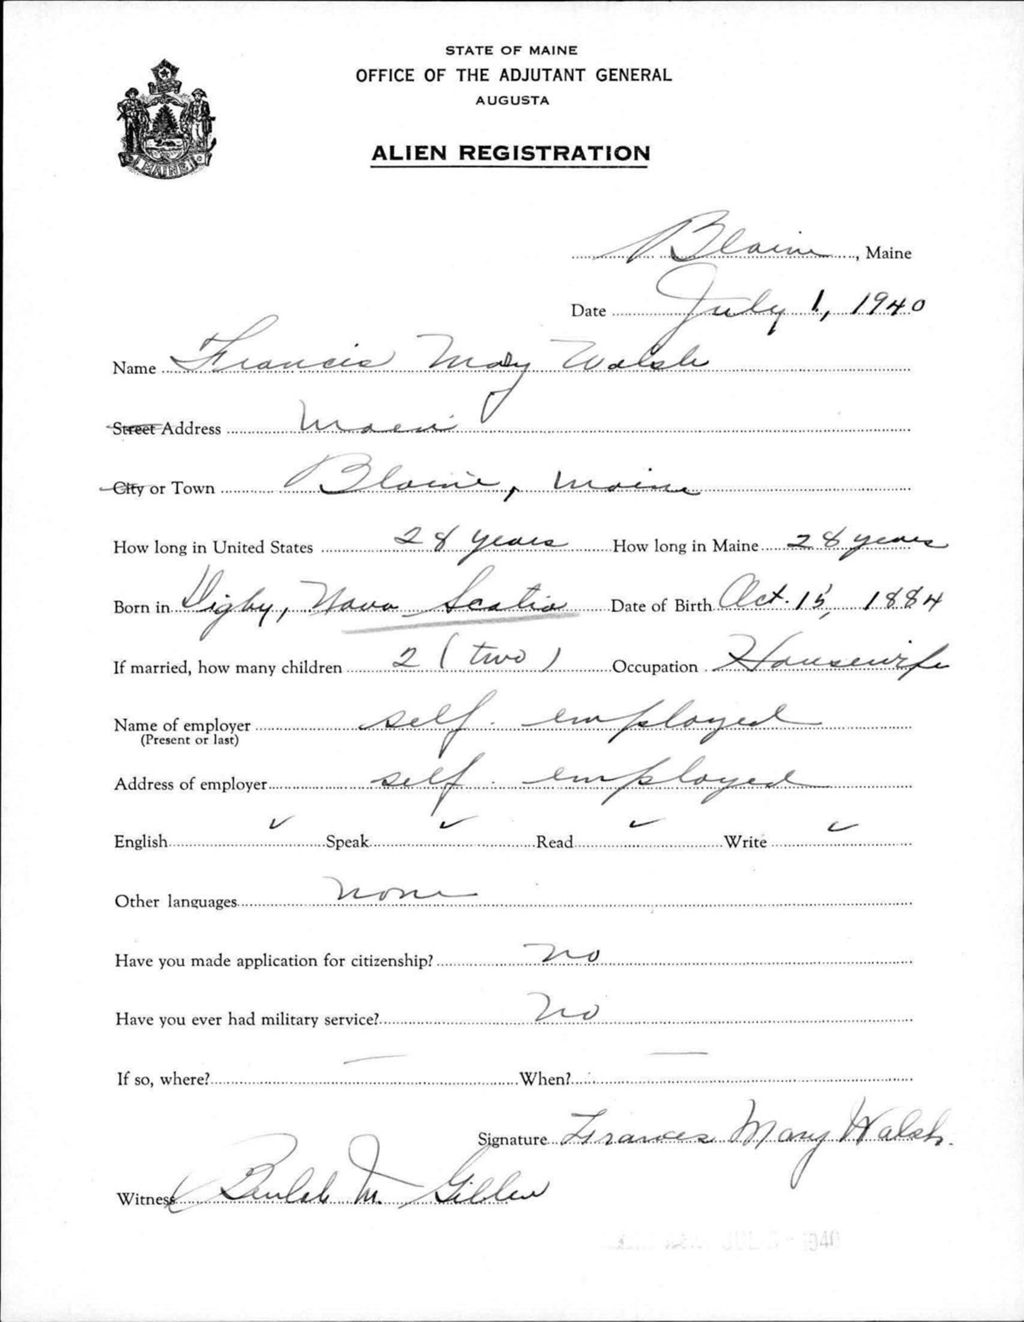 STATE OF MAINE
OFFICE OF THE ADJUTANT GENERAL
AUGUSTA
ALIEN REGISTRATION
MAINE
Blaine, Maine
Date July 1, 1940
Name Francis Mary Walsh
Street Address Main
City or Town Blaine, Maine
How long in United States 28 years How long in Maine 28 years
Born in Digby, Nova Scotia Date of Birth Oct. 15, 1884
If married, how many children 2 (two) Occupation Housewife
Name of employer self. employed
(Present or last)
Address of employer self. employed
English ✓ Speak ✓ Read ✓ Write ✓
Other languages none
Have you made application for citizenship? no
Have you ever had military service? No
If so, where? — When? —
Signature Frances Mary Walsh.
Witness Beulah M.
JUL 1940